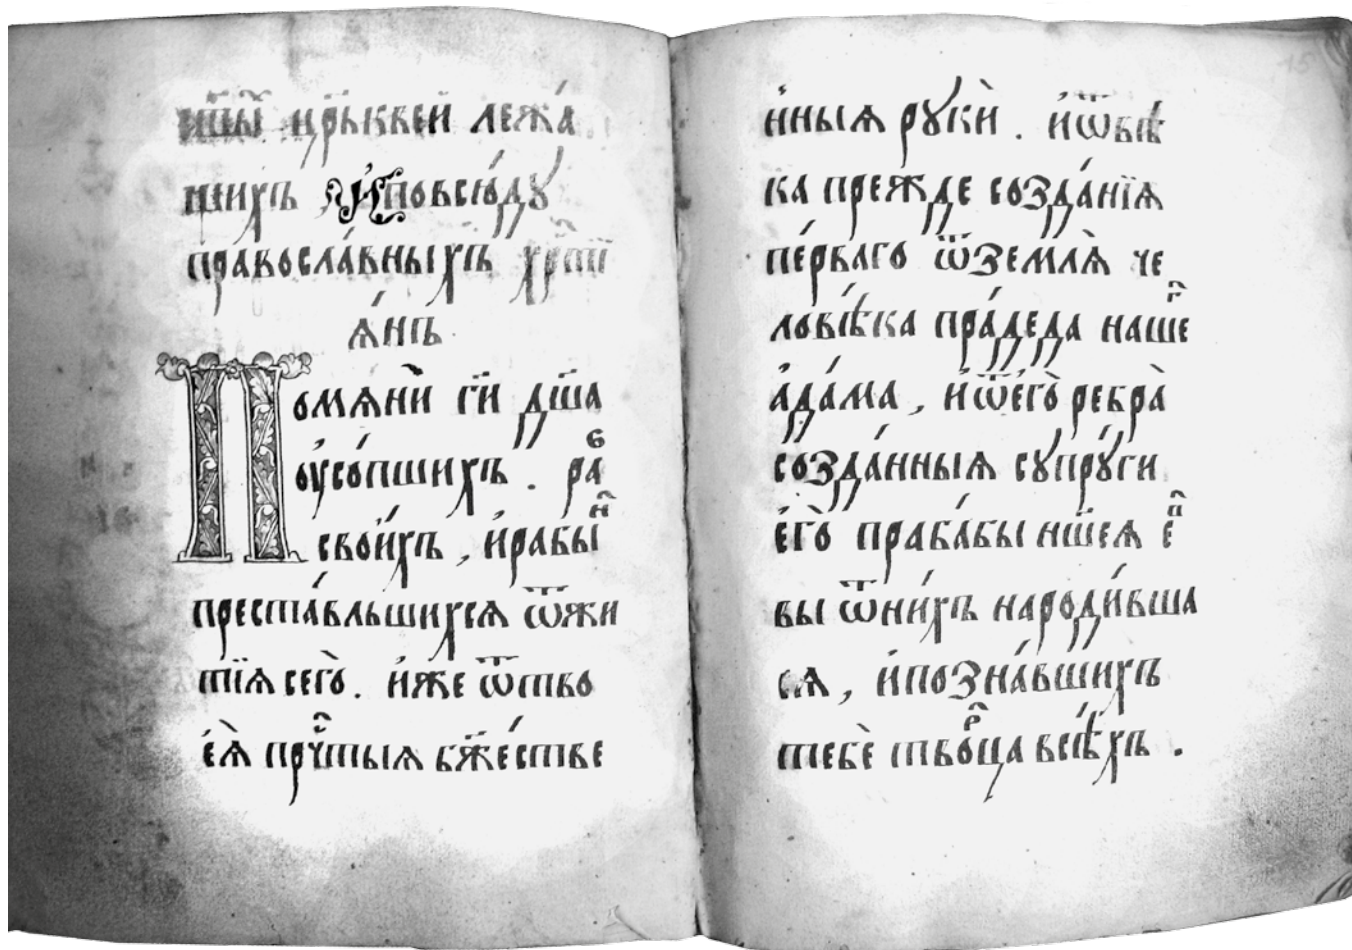 цр҃квеи лежа́
щихъ и҆повсю́ду
правосла́вныхъ хрⷭ҇тї
ѧ́нъ.
Помѧнѝ гⷭ҇и дш҃а
ѹ҆со́пшихъ . ра́ⷠ
свои́хъ , и҆рабы́ⷩ҇
преста́вльшихсѧ ѿжи
тїѧ сего̀ . и҆́же ѿтво
еѧ̀ прⷱ҇тыѧ бж҃е́стве
нныѧ рꙋкѝ . и҆ѿвѣ́
ка пре́жде созда́нїѧ
пе́рваго ѿземлѧ̀ че
ловѣ́ка пра́деда нашеⷢ҇
а҆да́ма , и҆ѿе҆го̀ ребра̀
созда́нныѧ сꙋпрꙋ́ги
е҆го̀ праба́бы нш҃еѧ е҆ⷡ҇
вы ѿни́хъ народи́вша
сѧ , и҆позна́вшихъ
тебѐ твоⷬ҇ца всѣ́хъ .